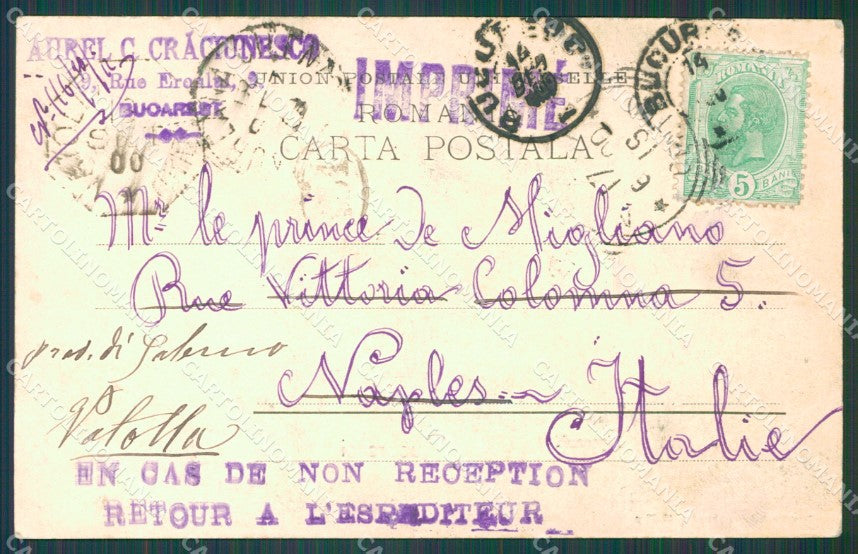 AUREL C. CRĂCIUNESCO
9, Rue Ereului, 9,
BUCAREST
UNION POSTALE UNIVERSELLE
IMPRIMÉ
ROMA
CARTA POSTALA
BUCUR
14
ROMANIA
5 BANI
Mr. le prince de Migliano
Rue Vittoria Colomna 5.
Naples=~ Italie
prov. di Salerno
Vatolla
EN CAS DE NON RECEPTION
RETOUR A L'ESPEDITEUR
CARTOLINOMANIA